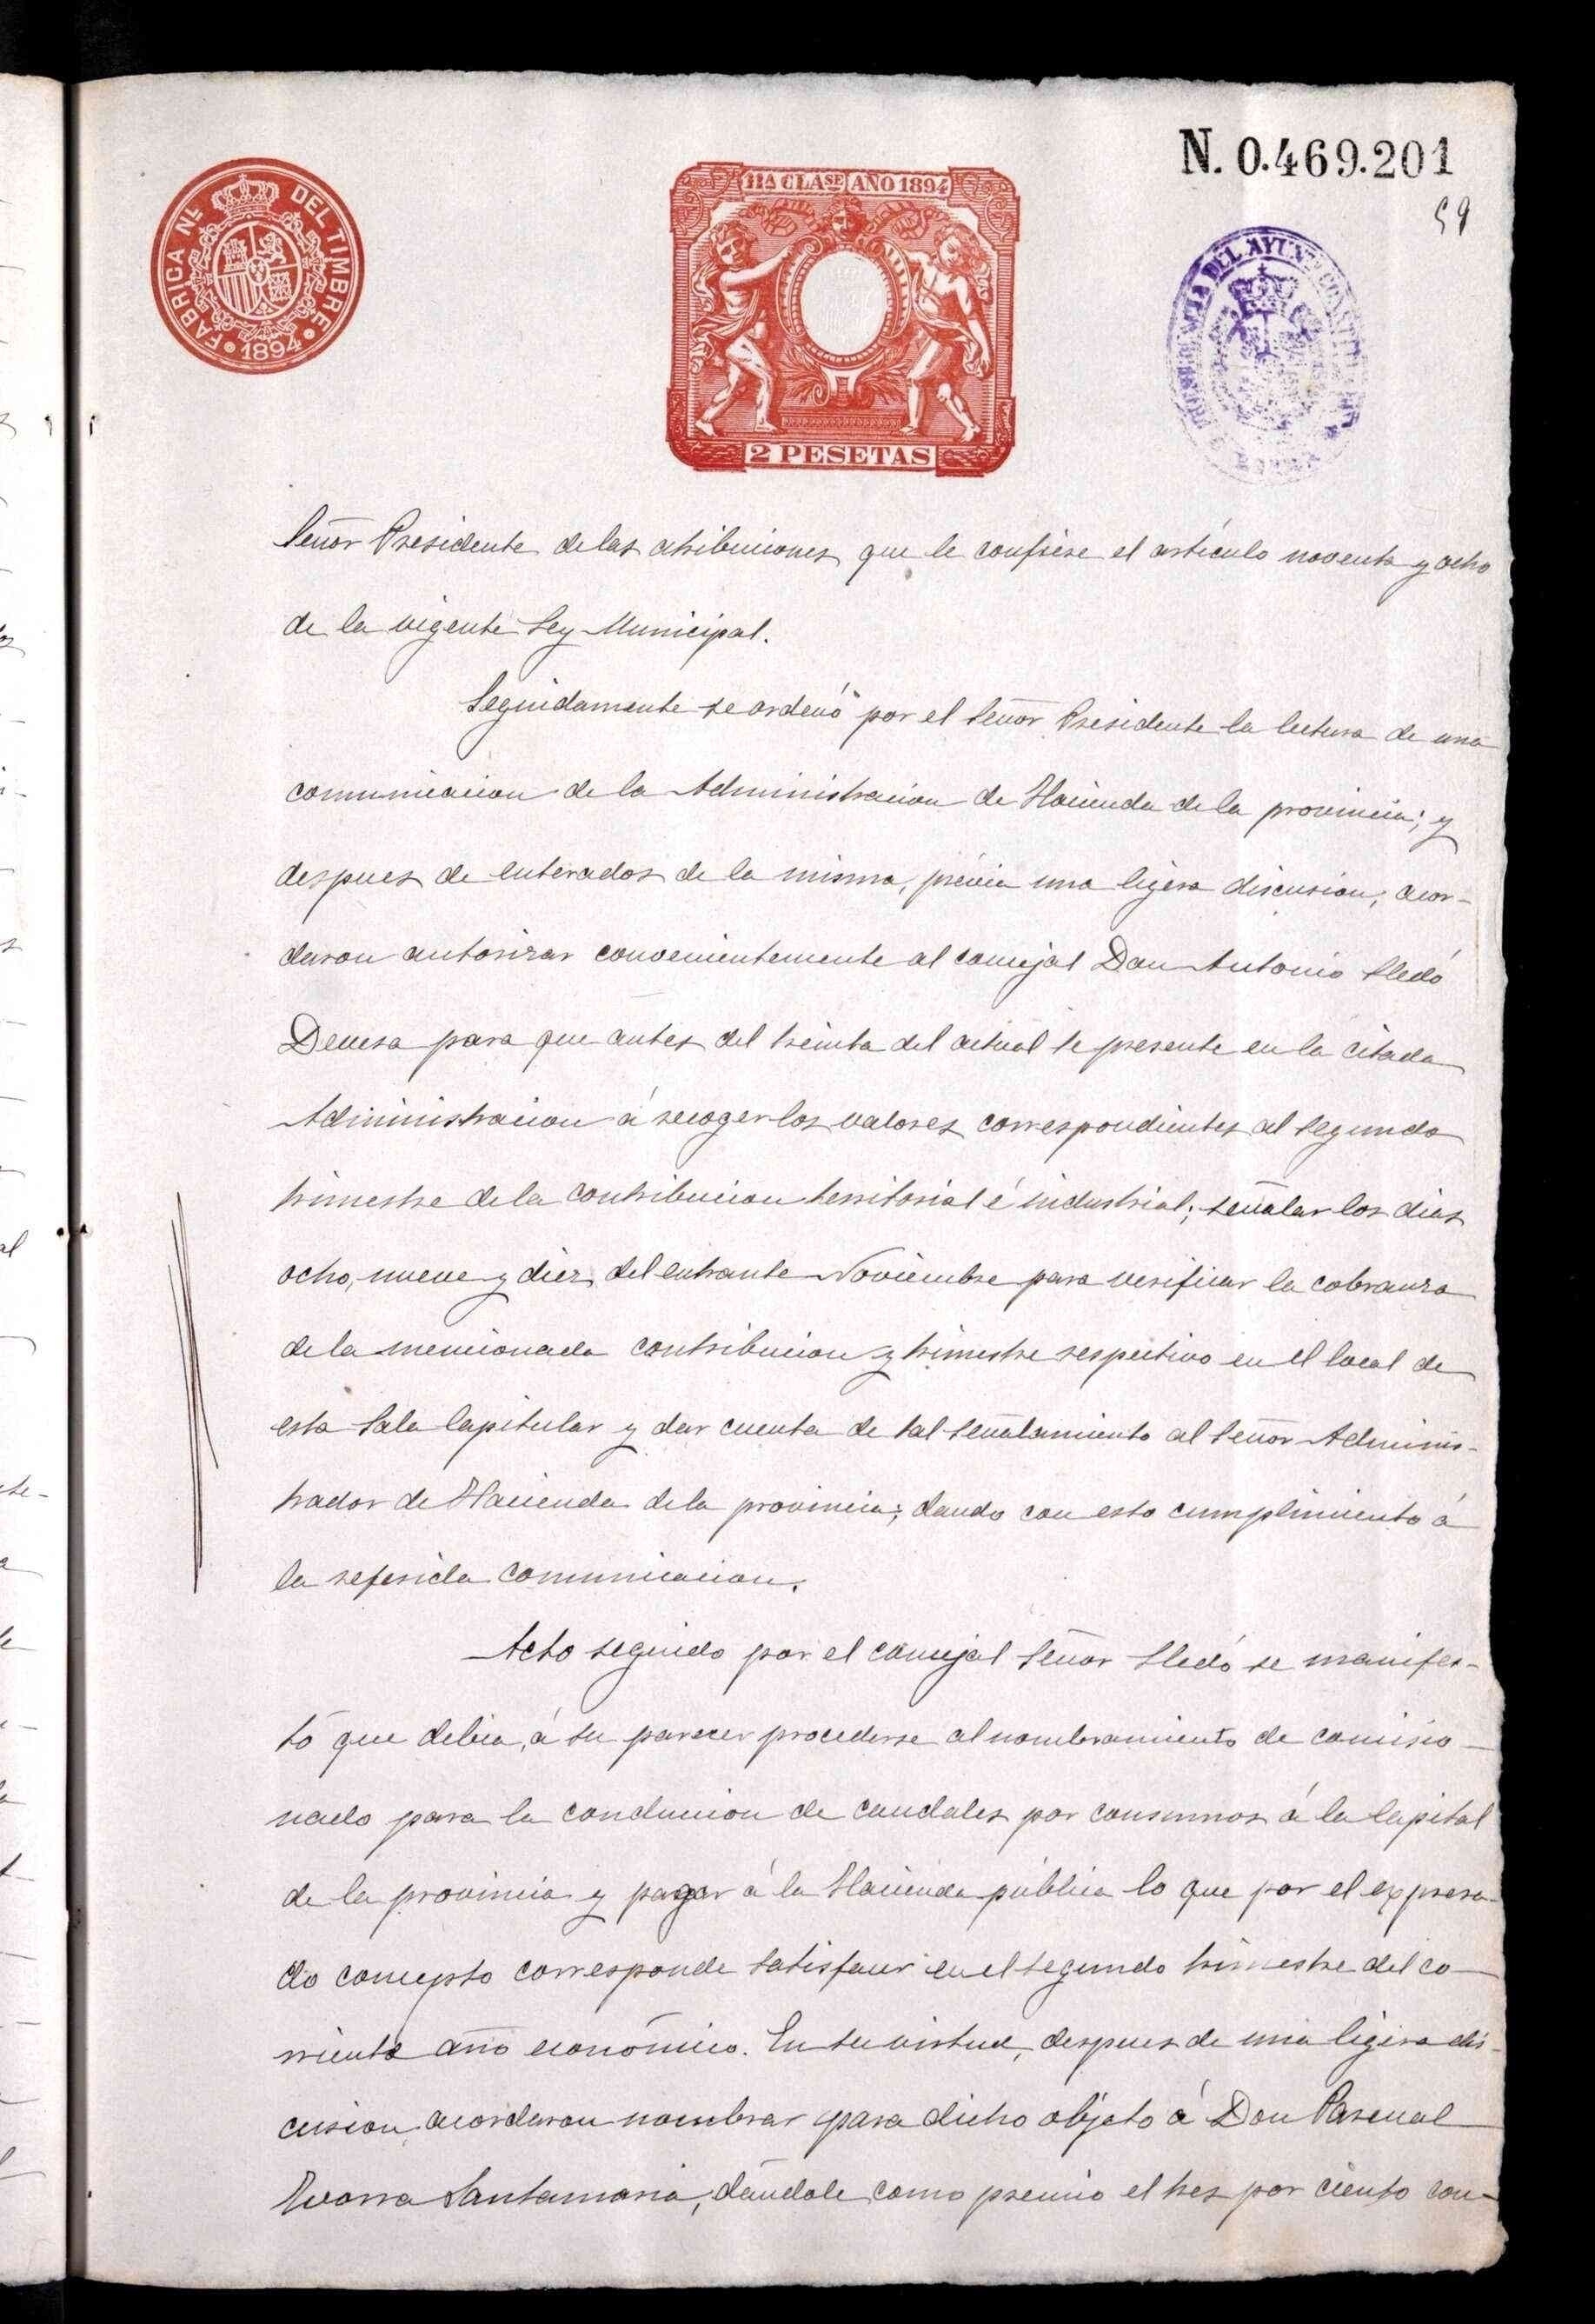 N. 0.469.201
59
FABRICA NL. DEL TIMBRE
1894
11A CLASE AÑO 1894
2 PESETAS
PRESIDENCIA DEL AYUNT
Señor Presidente de las atribuciones que le confiere el artículo noventa y ocho
de la vigente Ley Municipal.
Seguidamente se ordenó por el Señor Presidente la lectura de una
comunicacion de la Administracion de Hacienda de la provincia; y
despues de enterados de la misma, prévia una ligera discusion; acor-
daron autorizar convenientemente al concejal Don Antonio Lledó
Devesa para que antes del treinta del actual se presente en la citada
Administracion á recoger los valores correspondientes al segundo
trimestre de la contribucion territorial é industrial; señalar los dias
ocho, nueve y diez del entrante Noviembre para verificar la cobranza
de la mencionada contribucion y trimestre respectivo en el local de
esta Sala Capitular y dar cuenta de tal señalamiento al Señor Adminis-
trador de Hacienda de la provincia; dando con esto cumplimiento á
la referida comunicacion.
Acto seguido por el concejal Señor Lledó se manifes-
tó que debia, á su parecer procederse al nombramiento de comisio-
nado para la conduccion de caudales por consumos á la Capital
de la provincia y pagar á la Hacienda pública lo que por el expresa-
do concepto corresponde satisfacer en el segundo trimestre del co-
rriente año económico. En su virtud, despues de una ligera dis-
cusion, acordaron nombrar para dicho objeto á Don Pascual
Ivorra Santamaria, dándole como premio el tres por ciento con-